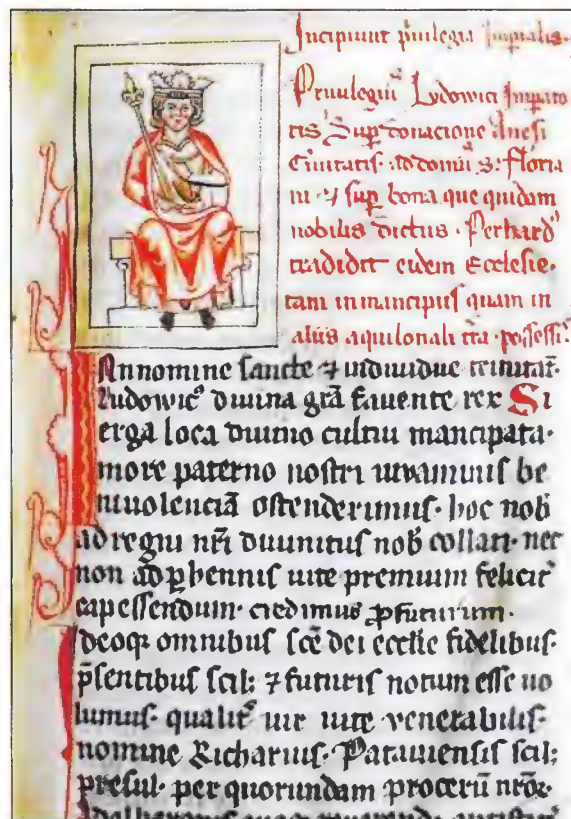 Incipiunt p̃uilegia Impialis·
Priuilegiũ Lodowici Impato
ris Sup̱ donacione Anesi
Ciuitatis· ad domũ S: Floria
ni· ⁊ sup̱ bona que quidam
nobilis dictus · Perhard᾽
tradidit eidem Ecclesie·
tam in mancipijs quam in
alijs aquilonali
Innomine sancte ⁊ indiuidue trinitat̃·
Ludowic᾽ diuina grã fauente rex Si
erga loca diuino cultui mancipata·
more paterno nostri iuuaminis be
niuolenciã ostenderimus· hoc nob̃
ad regni nr̃i diuinitus nob̃ collati· nec
non ad ꝑhennis uite premium felicit̃
capessendum· credimus ꝓfuturum·
deoqꝫ omnibus sc̃e dei eccl̃ie fidelibus·
p̃sentibus scil; ⁊ futuris notum esse uo
lumus· qualit̃ uir uite venerabilis·
nomine Richarius· Patauiensis scil;
presul· per quorundam procerũ nr̃oꝝ